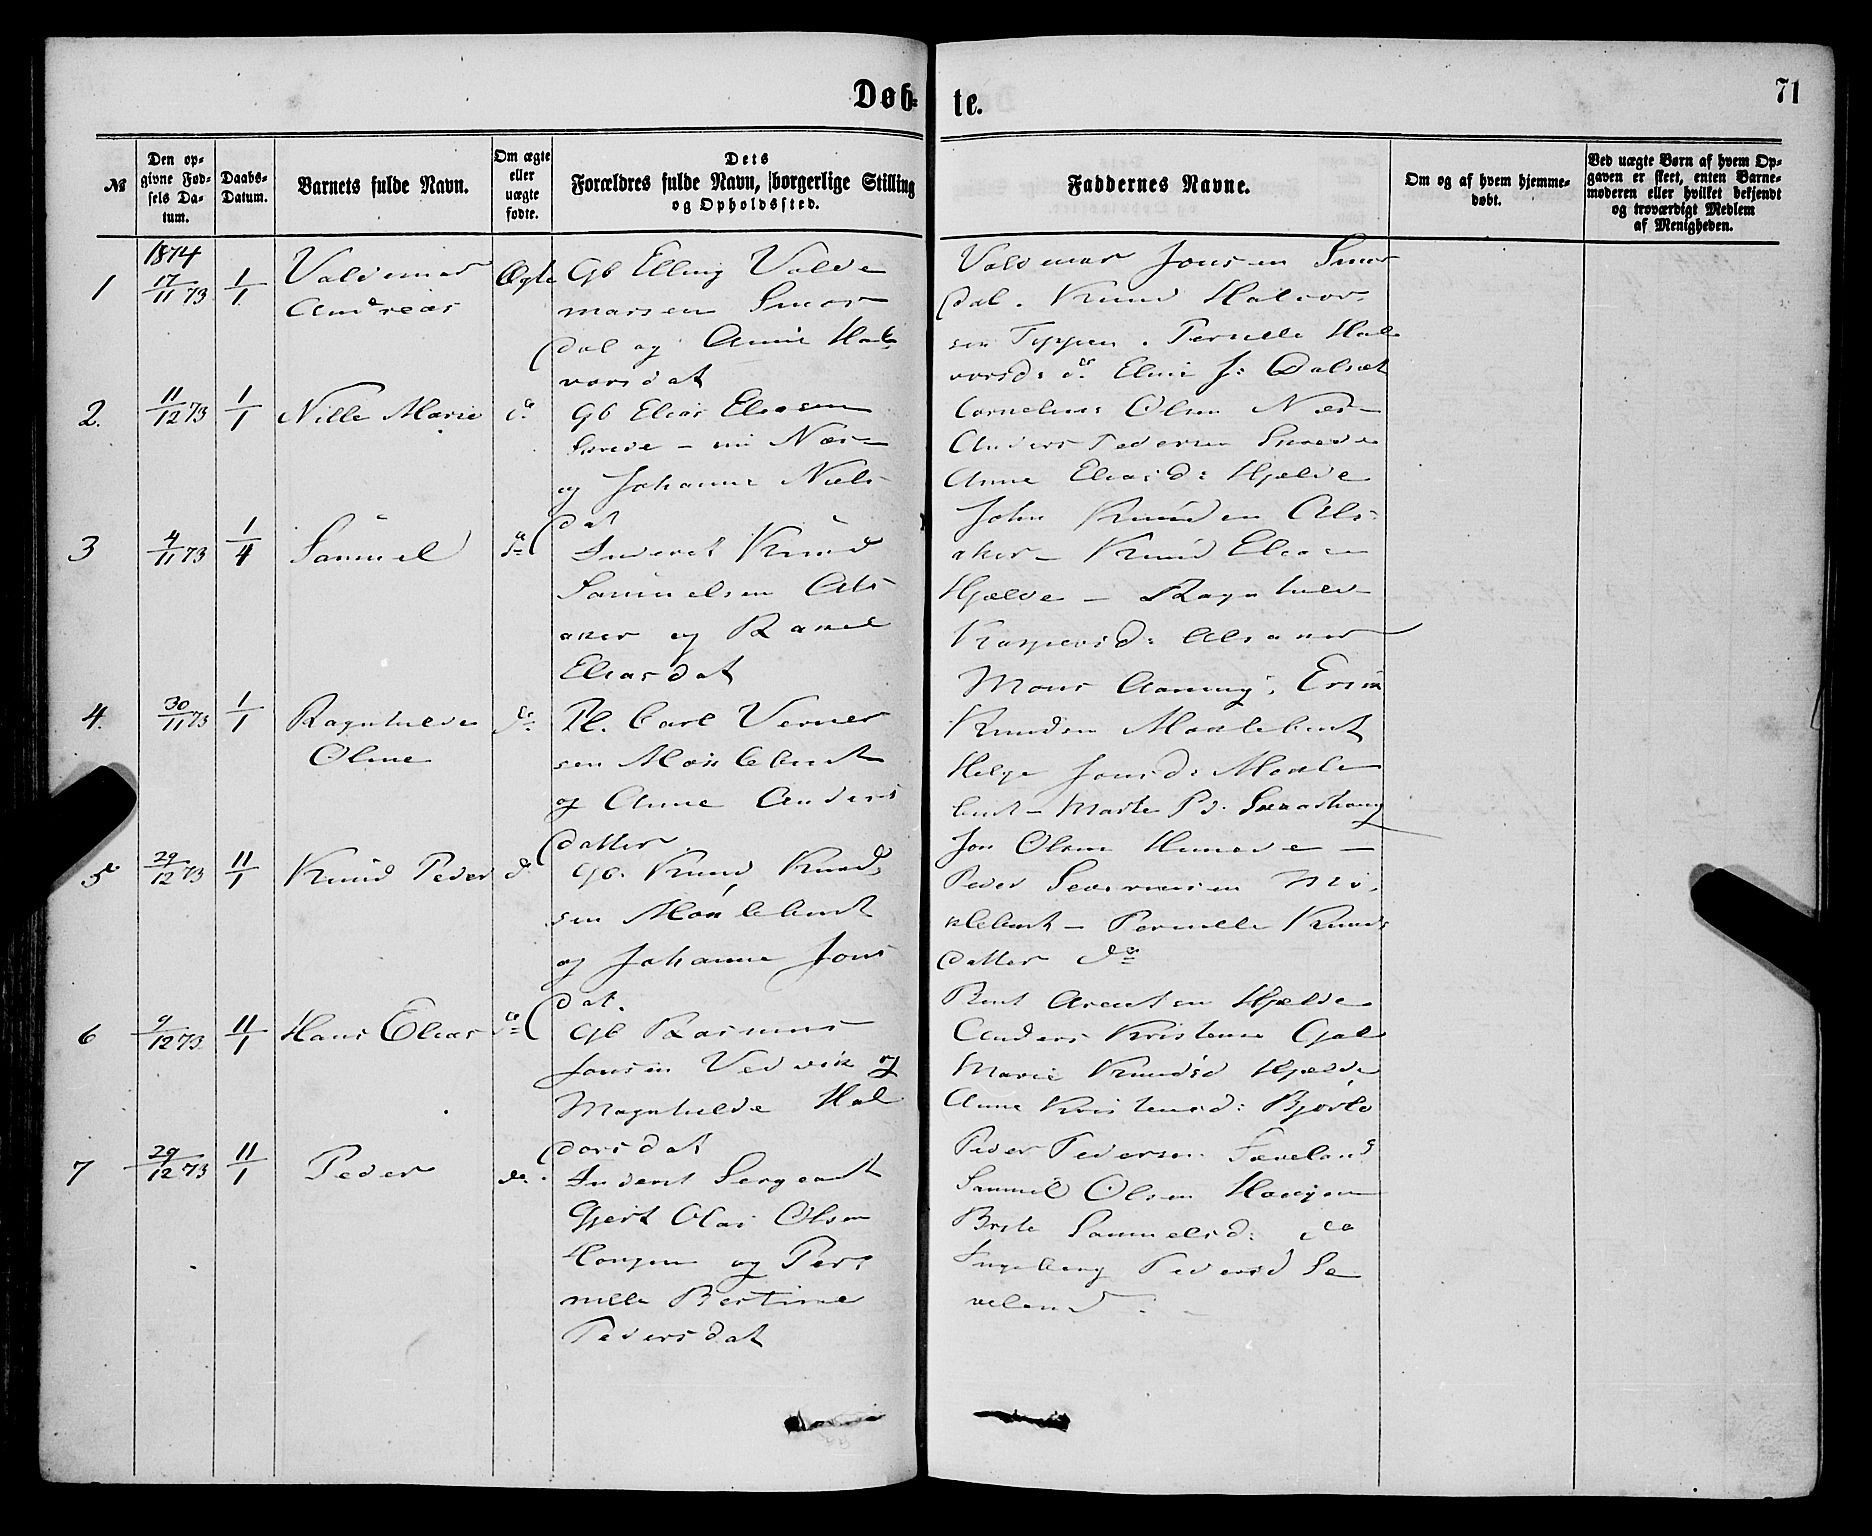 Døb-
te.
71
№
Den op-
givne Fød-
sels Da-
tum.
Daabs-
Datum.
Barnets fulde Navn.
Om ægte
eller
uægte
fødte.
Dets
Forældres fulde Navn, borgerlige Stilling
og Opholdssted.
Faddernes Navne.
Om og af hvem hjemme-
døbt.
Ved uægte Børn af hvem Op-
gaven er skeet, enten Barne-
moderen eller hvilket bekjendt
og troværdigt Medlem
af Menigheden.
1874
1
17/11 73
1/1
Valdemar
Andreas
Ægte
Gb Elling Valde
marsen Smør
dal og Anne Hal
vorsdat
Valdemar Jonsen Smør
dal. Knud Halvor
sen Toppen. Pernille Hal
vorsd: do Eline J: Dalsæt
2.
11/12 73
1/1
Nille Marie
do
Gb Elias Eliasen
og Johanne Niels
dat
Cornelius Olsen
Anders Pedersen
Anne Eliasd: Hjelde
3
4/11 73
1/4
Samuel
do
Inderst Knud
Samuelsen Als
aker og Rakel
Eliasdat
John Knudsen Als
aker - Knud Eliasen
Hjælde - Ragnhild
Kaspersd: Alsaker
4.
30/11 73
1/1
Ragnhilde
Oline
do
Pl. Carl Verner
sen Møklebust
og Anne Anders
datter.
Mons
Knudsen Møklebust
Helge Jonsd: Møkle
bust - Marte Pd.
5
29/12 73
11/1
Knud Peder
do
Gb. Knud Knud
sen Møklebust
og Johanne Jons
dat.
Jon Olsen
Peder Severinsen Mø
klebust - Pernille Knuds
datter do
6
9/12 73
11/1
Hans Elias
do
Gb Rasmus
Jonsen Vedvik og
Magnhilde Hal
dorsdat
Bent Arentsen Hjelde
Anders Kristensen
Marie Knudsd Hjelde
Anne Kristensd: Bjørlo
7
29/12 73
11/1
Peder
do.
Inderst Sergeant
Gjert Olai Olsen
Haugen og Per
nille Bertine
Pedersdat
Peder Pedersen Sæveland
Samuel Olsen Haugen
Brite Samuelsd: do
Ingeborg Pedersd Se
veland